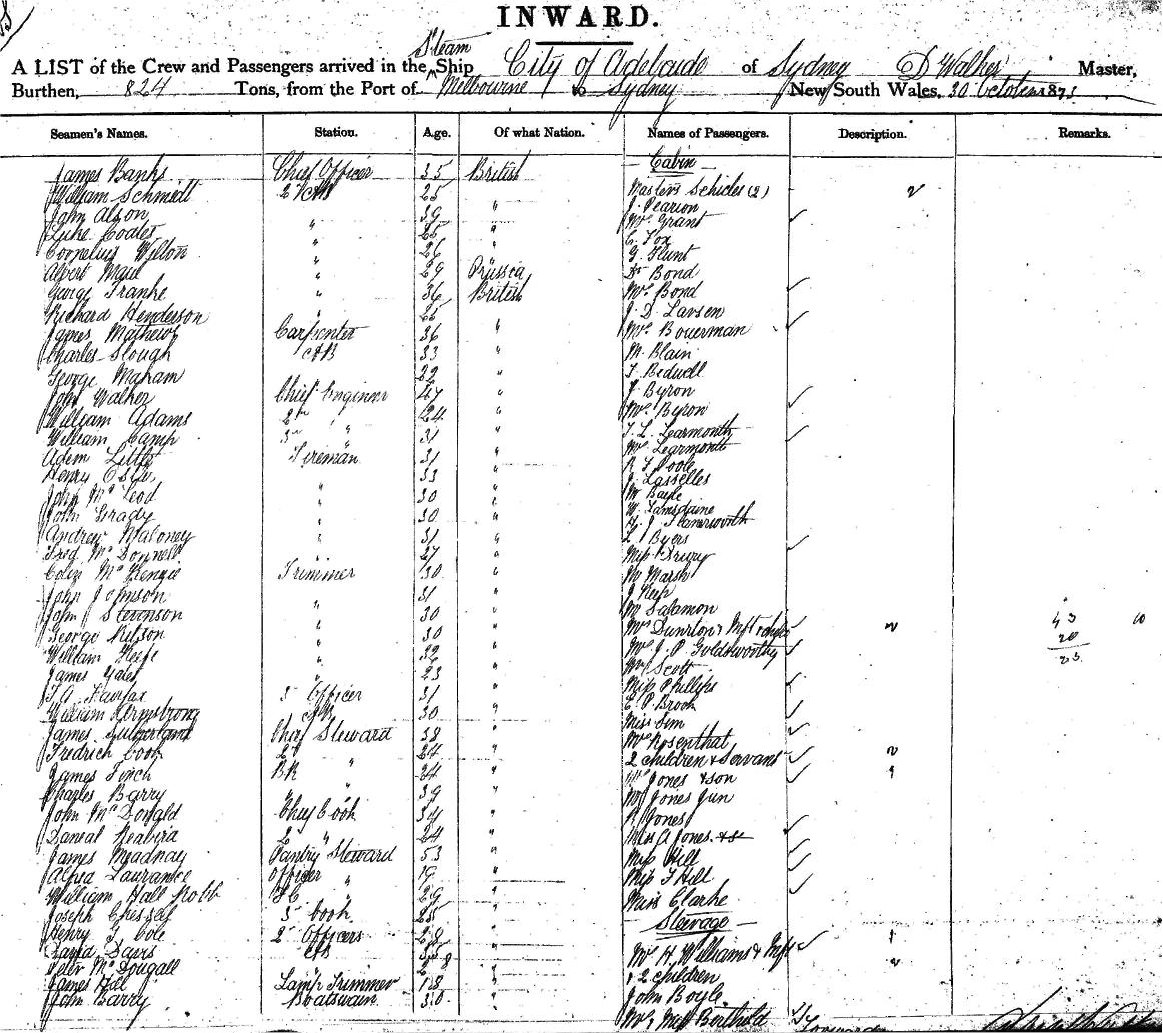 INWARD.
Steam
A LIST of the Crew and Passengers arrived in the Ship City of Adelaide of Sydney D Walker Master,
Burthen, 824 Tons, from the Port of Melbourne to Sydney New South Wales, 30 October 187
Seamen's Names. Station. Age. Of what Nation. Names of Passengers. Description. Remarks.
Cabin
James Banks Chief Officer 35 British
William Schmidt 25 " Masters (2) 2
John Olson " 39 " J. Pearson
Luke Coates " 25 " Mrs Grant
Cornelius Wilton " 26 " C. Fox
Albert " 29 Prussia G Flunt
George Franke " 36 British Dr Bond
Richard Henderson " 25 " Mrs Bond
James Mathews Carpenter 36 " J. D. Larsen
Charles Slough AB 33 " Mrs Bouerman
George Maham 22 " M. Blain
John Walker Chief Engineer 47 " F Bedwell
William Adams 2nd " 24 " J Byron
William Camp 3rd " 31 " Mrs Byron
Adam Little Fireman 31 " T. L. Learmonth
Henry 33 " Mrs Learmonth
John McLeod " 30 " R F Poole
John Grady " 30 " J. Lasselles
Andrew Maloney " 31 "
Fred McDonnell " 27 " L. Byers
Colin McKenzie Trimmer 30 " Miss Drury
John Johnson " 31 " Mr Marsh
John Stevenson " 30 " Mr Salamon
George Nilson " 30 " Mrs 2 43 10
William Keefe " 32 " Mrs J. P. Goldsworthy 20
James Yates " 23 " Mrs Scott 23
T. A. Fairfax 3rd Officer 31 " Miss Phillips
William Armstrong AB 30 " E. P. Brook
James Sutherland Chief Steward 38 " Miss Sim
Fredrich Cook 2d " 24 " Mrs Rosenthal
James Finch BR " 24 " 2 children & Servant 2
Charles Barry " " 39 " Mrs Jones & son 1
John McDonald Chief Cook 34 " Mr Jones Jun
Daneal 2 " 24 " R Jones
James Meadnay Pantry Steward 53 " Miss A Jones
Alfred Lawrance Officer " 19 " Miss Hill
William Hall Robb " 29 " Miss F Hill
Joseph 3rd Cook 25 " Miss Clarke
Steerage
Henry F Cole 2nd Officers 28 " Mr H. Williams & 1
David Davis AB 35 " & 2 children 2
Peter McDougall " 28 "
James Hill Lamp Trimmer 18 " John Boyle
John Barry Boatswain 30 " Mrs